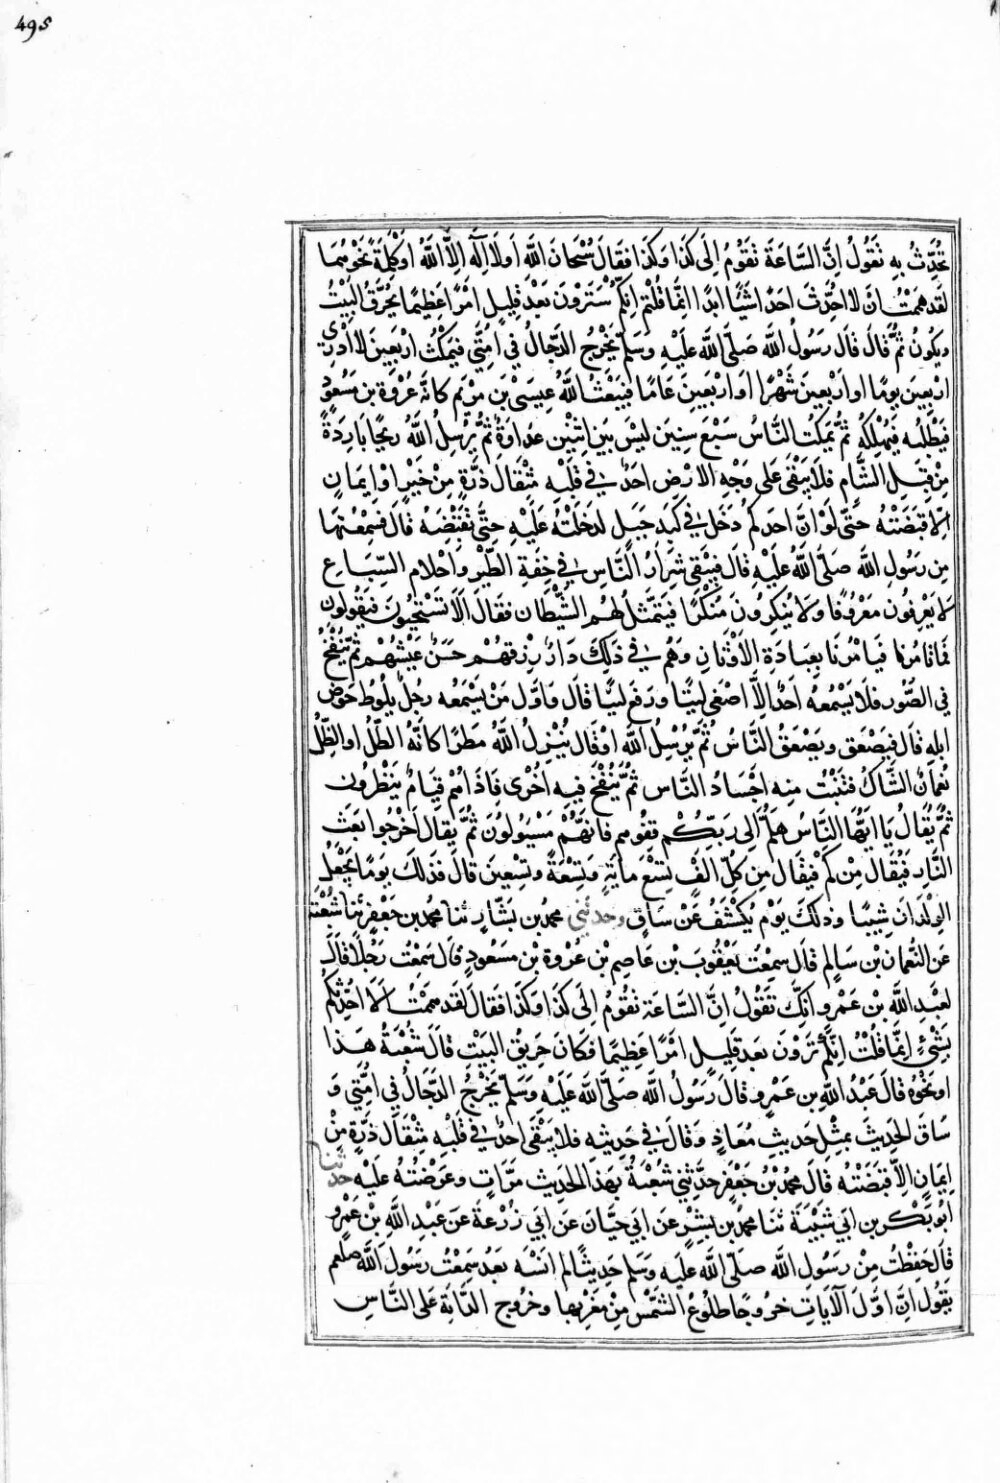 495
تُحَدِّثُ بِهِ تَقُولُ اِنَّ السَّاعَةَ تَقُومُ اِلَى كَذَا وَكَذَا فَقَالَ سُبْحَانَ اللَّهِ اَو لَا اِلَهَ اِلَّا اللَّهُ اَوْ كَلِمَةً نَحْوَهُمَا
لَقَد هَمَمْتُ اَنْ لَا اُحَدِّثَ اَحَدًا شَيْئًا اَبَدًا اِنَّمَا قُلْتُ اِنَّكُمْ سَتَرَوْنَ بَعْدَ قَلِيلٍ اَمْرًا عَظِيمًا يُحَرَّقُ البَيْتُ
وَيَكُونُ ثُمَّ قَالَ قَالَ رَسُولُ اللَّهِ صَلَّى اللَّهُ عَلَيْهِ وَسَلَّمَ يَخْرُجُ الدَّجَّالُ فِي اُمَّتِي فَيَمْكُثُ اَرْبَعِينَ لَا اَدْرِي
اَرْبَعِينَ يَوْمًا اَو اَرْبَعِينَ شَهْرًا اَوْ اَرْبَعِينَ عَامًا فَيَبْعَثُ اللَّهُ عِيسَىْ بْنَ مَرْيَمَ كَانَّهُ عُرْوَةُ بن مَسْعُودٍ
فَيَطْلُبُه فَيُهْلِكُهُ ثُمَّ يَمْكُثُ النَّاسُ سَبْعَ سِنِينَ لَيْسَ بَيْنَ اثْنَيْنِ عَدَاوَةٌ ثُمَّ يُرْسِلُ اللَّهُ رِيْحًا بَارِدَةً
مِنْ قِبَلِ الشَّامِ فَلَا يَبْقَى عَلَى وَجْهِ الارْضِ اَحَدٌ فِي قَلْبِهِ مِثْقَالُ ذَرَّةٍ مِنْ خَيْرٍ اَوْ اِيمَانٍ
اِلَّا قَبَضَتْهُ حَتَّى لَوْ اَنَّ اَحَدَكُمْ دَخَلَ فِي كَبِدِ جَبَلٍ لَدَخَلَتْهُ عَلَيْهِ حَتَّى تَقْبِضَهُ قَالَ فَسَمِعْتُهَا
مِن رَسُولِ اللَّهِ صَلَّى اللَّهُ عَلَيْهِ قَالَ فَيَبْقَى شِرَارُ النَّاسِ فِي خِفَّةِ الطَّيْرِ وَاَحْلَامِ السِّبَاعِ
لَا يَعْرِفُونَ مَعْرُوفًا وَلَا يُنكِرُونَ مُنْكَرًا فَيَتَمَثَّلُ لَهُمُ الشَّيْطَانُ فَقَالَ اَلَا تَسْتَحْيُونَ فَيَقُولُونَ
فَمَا تَاْمُرُنَا فَيَاْمُرُنَا بِعِبَادَةِ الْاَوْثَانِ وَهُمْ فِي ذَلِكَ دَارٌّ رِزْقُهُمْ حَسَنٌ عَيْشُهُمْ ثُمَّ يُنْفَخُ
فِي الصُّورِ فَلَا يَسْمَعُهُ اَحَدٌ اِلَّا اَصْغَى لِيتًا وَرَفَعَ لِيتًا قَالَ فَاَوَّلُ مَنْ يَسْمَعُه رَجُلٌ يَلُوطُ حَوْضَ
اِبِلِهِ قَالَ فَيَصْعَقُ وَيَصْعَقُ النَّاسُ ثُمَّ يُرْسِلُ اللَّهُ اَو قَالَ يُنْزِلُ اللَّهُ مَطَرًا كَاَنَّهُ الطَّلُّ اَو الظِّلُّ
نُعْمَانُ الشَّاكُّ فَتَنْبُتُ مِنهِ اَجْسَادُ النَّاسِ ثُمَّ يُنْفَخُ فِيهِ اُخْرَى فَاِذَا هُمْ قِيَامٌ يَنْظُرُون
ثُمَّ يُقَالُ يَا اَيُّهَا النَّاسُ هَلُمَّ اِلَى رَبِّكُمْ قِفُوهم فَانَّهُمْ مَسْؤلُونَ ثُمَّ يُقَال اَخْرِجُوا بَعْثَ
النَّارِ فَيُقَال مِنْ كَمْ فَيُقَال مِن كُلِّ الْفٍ تِسْعَ مِايَةٍ وَتِسْعَةً وَتِسْعِينَ قَالَ فَذَلِكَ يَوْمًا يَجْعَلُ
الوِلْدَانَ شِيبًا وَذَلِكَ يَوْم يُكْشَفُ عَنْ سَاقٍ وحدثني مُحَمَّدُ بن بَشَّارٍ ثنا مُحَمَّدُ بن جَعْفَرٍ ثنا شُعْبَةُ
عَن النُّعْمَانِ بْن سَالِمٍ قَالَ سَمِعْتُ يَعْقُوبَ بْن عَاصِمِ بْنِ عُرْوَةَ بْنِ مَسْعُودٍ قَالَ سَمِعْتُ رَجُلًا قَالَ
لِعَبْدِ اللَّهِ بْن عَمْرٍو اِنَّكَ تَقُولُ اِنَّ السَّاعَةَ تَقُومُ اِلَى كَذَا وَكَذَا فَقَالَ لَقَد هَمَمْتُ اَلَّا اُحَدِّثَكُمْ
بِشَيْءٍ اِنَّمَا قُلْتُ اِنَّكُمْ تَرَوْنَ بَعدَ قَلِيلٍ اَمْرًا عَظِيمًا فَكَانَ حَرِيقَ البَيْتِ قَالَ شُعْبَةُ هَذَا
اَوْ نَحْوَهُ قَالَ عَبْدُ اللَّهِ بن عَمْرٍو قَالَ رَسُولُ اللَّهِ صَلَّى اللَّهُ عَلَيْهِ وَسَلَّمَ يَخْرُجُ الدَّجَّالُ فِي اُمَّتِي وَ
سَاقَ الحَدِيثَ بِمِثْلِ حَدِيثِ مُعَاذٍ وَقَالَ فِي حَدِيثِهِ فَلَا يَبْقَى اَحَدٌ فِي قَلْبِهِ مِثْقَالُ ذَرَّةٍ مِنْ
اِيمَانٍ اِلَّا قَبَضَتْهُ قَالَ مُحَمَّدُ بْنُ جَعْفَرٍ حَدَّثَنِي شُعْبَةُ بِهَذَا الْحَدِيثِ مَرَّاتٍ وَعَرَضْتُهُ عَلَيْهِ حدثنا
اَبُو بَكْرِ بن اَبِي شَيْبَةَ ثنا مُحَمَّدُ بن بِشْرٍ عن اَبِي حَيَّانَ عَن اَبِي زُرْعَةَ عَن عَبدِ اللَّهِ بْنِ عَمْرٍو
قَالَ حَفِظْتُ مِنْ رَسُولِ اللَّه صَلَّى اللَّه عَلَيهِ وَسَلَّم حَدِيثًا لَم اَنْسَهُ بَعدُ سَمِعْتُ رَسُولَ اللَّهِ صلعم
يَقُولُ اِنَّ اَوَّلَ الْآيَاتِ خُرُوجًا طُلُوعُ الشَّمْسِ مِنْ مَغْرِبِهَا وَخُرُوجُ الدَّابَّةِ عَلَى النَّاسِ